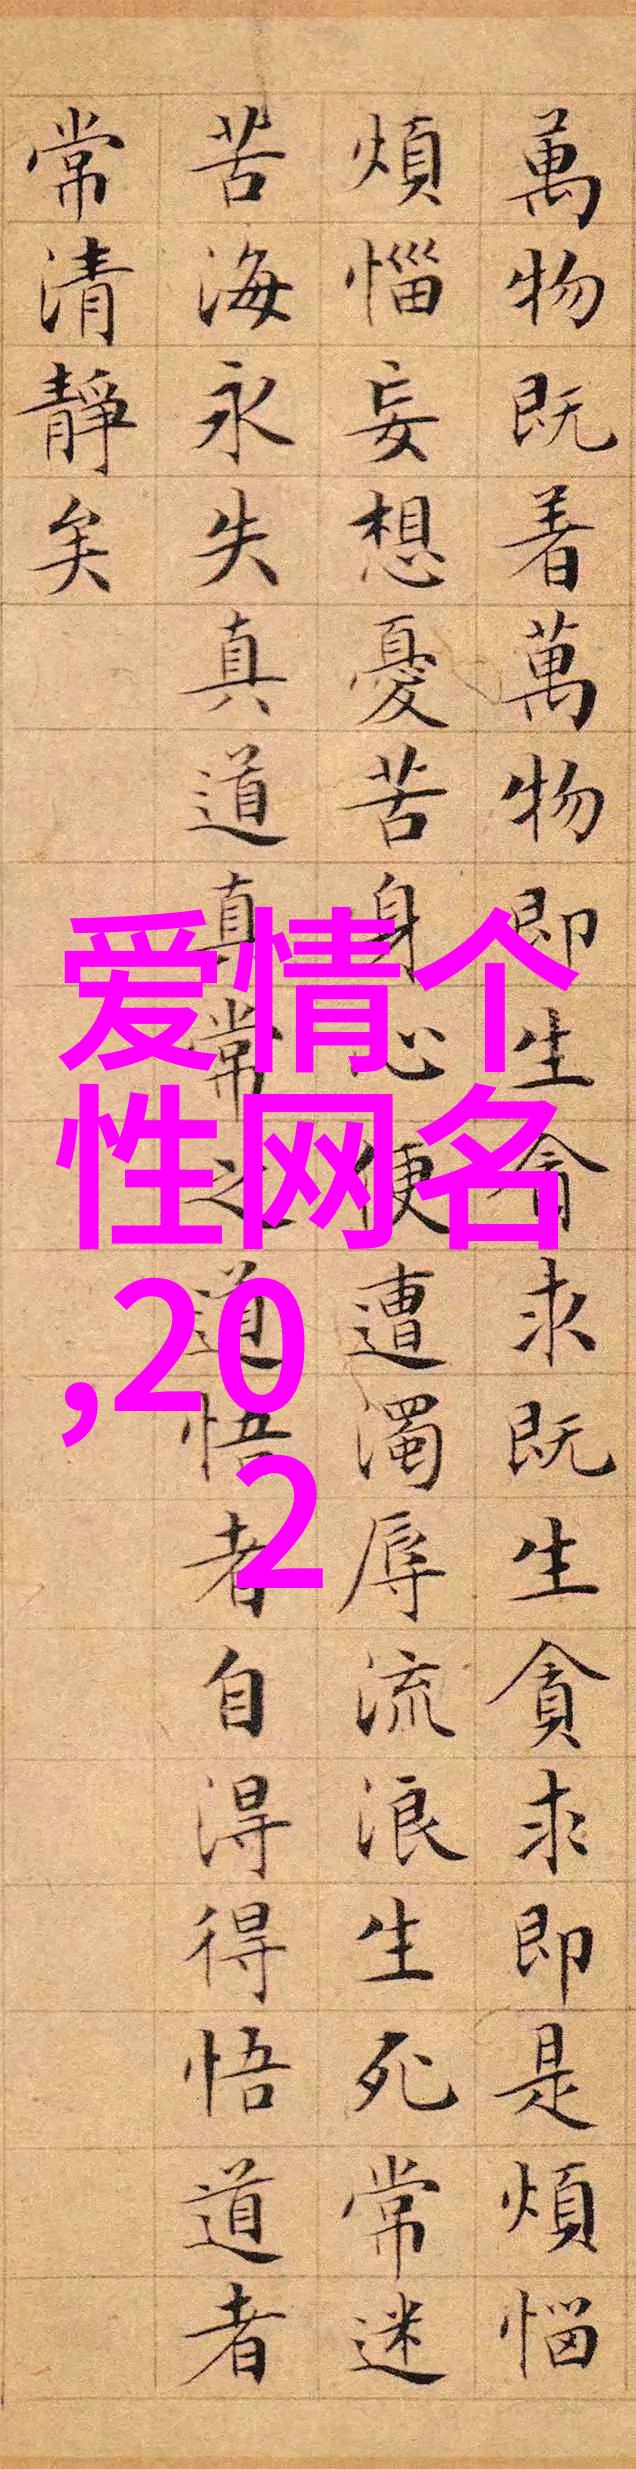 萬物既着萬物即生貪求既生貪求即是煩惱
煩惱妄想憂苦身心便遭濁辱流浪生死常迷
苦海永失真道真常之道悟者自得得悟道者
常清靜矣
爱情个
性网名
,20
2